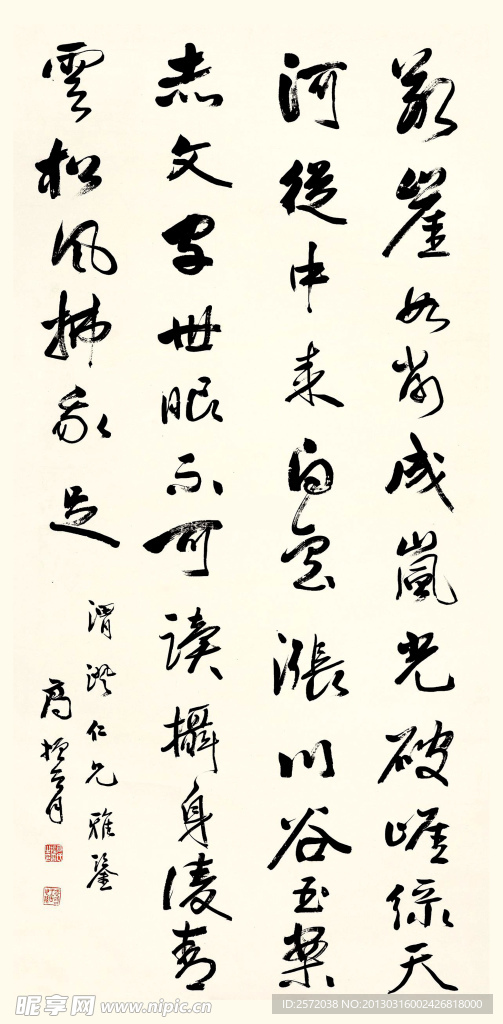 崖如削成嵐光破崕綠天
河從中來白雲漲川谷玉案
赤文字世眼不可讀攝身凌青
雲松風拂我足
渭澄仁兄雅鑒
高振霄
昵享网 www.nipic.cn
ID:2572038 NO:20130316002426818000